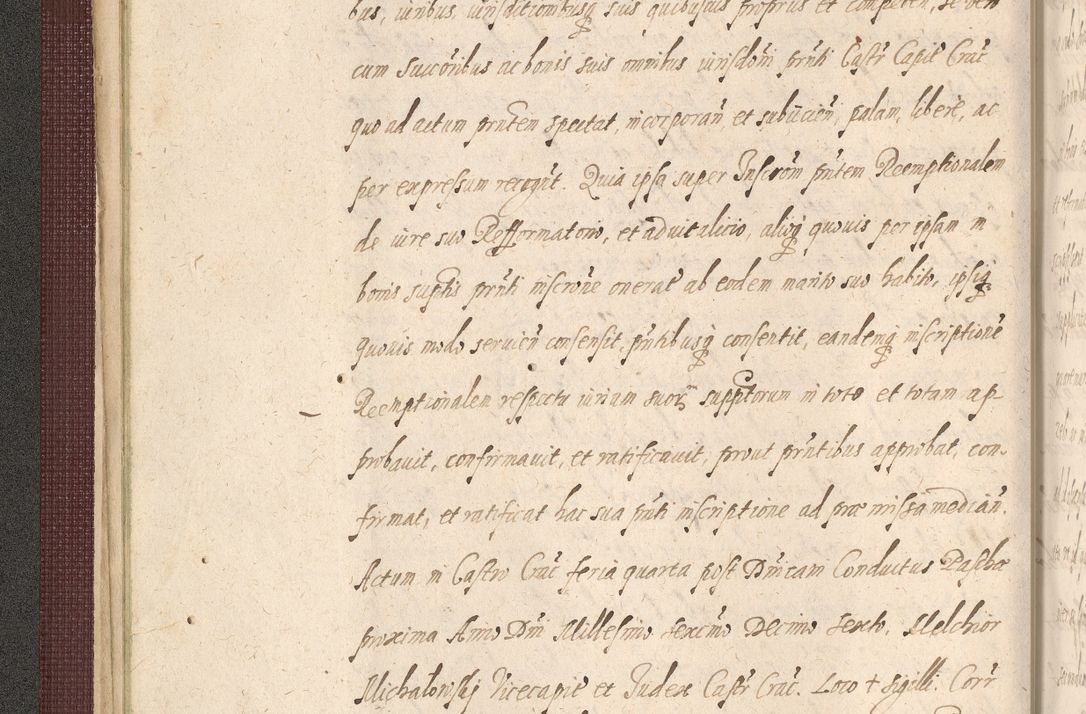 bus, iuribus, iurisdictionibusq suis quibusuis proprus et competen, se ven
cum Succoribus ac bonis suis omnibus iurisdoni prnti Castr Capit Crac
quo ad actum prntem spectat, incorporan, et subijcien, palam, libere, ac
per expressum recognt. Quia ipsa super Inscrom pntem Reemptionalem
de iure suo Refformatorio, et aduitalicio, alioq quouis per ipsam in
bonis suptis prnti inscrone onerat ab eodem marito suo habito, ipsiq
quouis modo seruien consensit, pntibusq consentit, eandemq inscriptione
Reemptionalem respectu iurium suor supptorum in toto et totam ap-
probauit, confirmauit, et ratificauit, prout prntibus approbat, con-
firmat, et ratificat hac sua pnti inscriptione ad præmissa median.
Actum in Castro Crac feria quarta post Dnicam Conductus Paschæ
proxima Anno Dni Millesimo sexcmo Decimo Sexto. Melchior
Michalowskj Vicecapit et Judex Castr Crac. Loco + sigilli. Corr